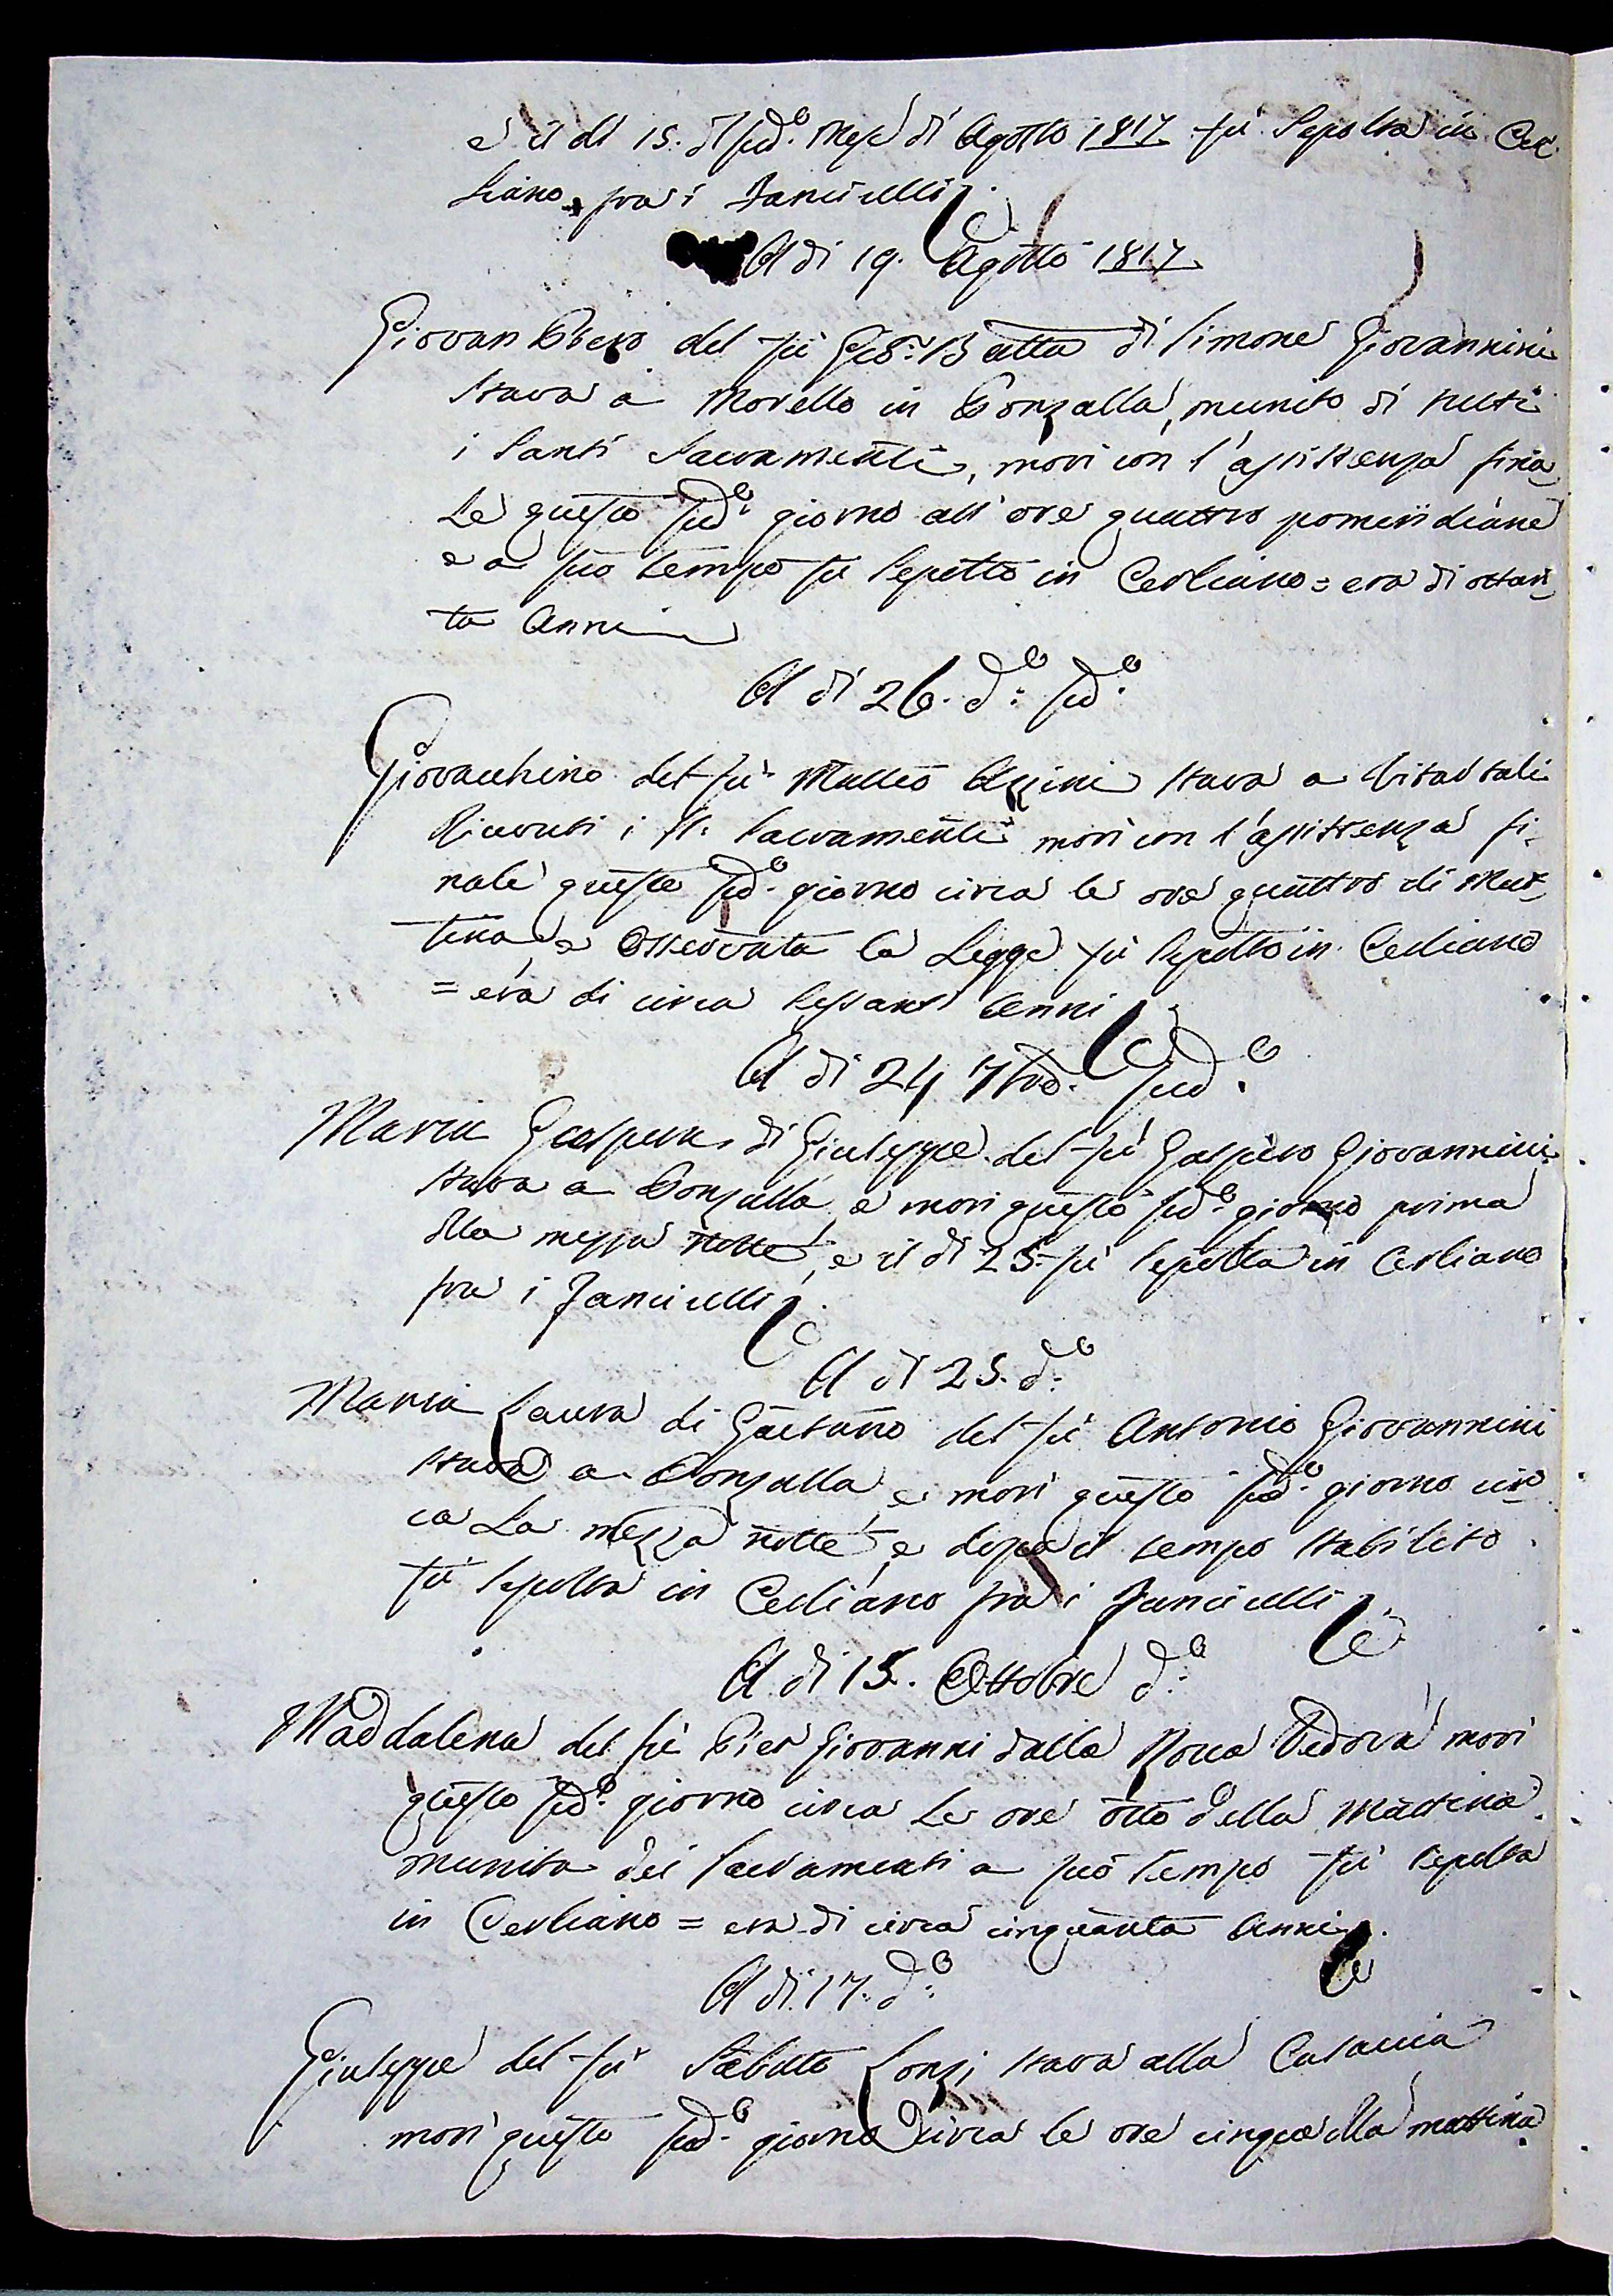 e il di 15. dl sud.o Mese di Agosto 1817 fù Sepolta in Cer
liano fra i Fanciulli
A di 19. Agosto 1817
Giovan Piero del fù Gio: Batta di Simone Giovannini
stava a Morello in Ponzalla, munito di tutti
i Santi Sacramenti, morì con l'assistenza fina
le questo sud.o giorno all'ore quattro pomeridiane
e a suo tempo fu Sepolto in Cerliano = era di ottan
ta Anni
A di 26. d.o sud.o
Giovacchino del fù Matteo Azzini stava a
Ricevuti i SS. Sacramenti morì con l'assistenza fi
nale questo sud.o giorno circa le ore quattro di Mat
tina, e Osservata la Legge fù Sepolto in Cerliano
= era di circa Sessant Anni
A di 24 7bre. sud.o
Maria Gaspera di Giuseppe del fù Gaspero Giovannini
stava a Ponzalla, e morì questo sud.o giorno prima
dlla mezza notte, e il di 25. fù Sepolta in Cerliano
fra i Fanciulli
A di 25. d.o
Maria Laura di Gaetano del fù Antonio Giovannini
stava a Ponzalla, e morì questo sud.o giorno cir
ca La mezza notte, e dopo il tempo stabilito
fù Sepolta in Cerliano fra i Fanciulli
A di 15. Ottobre d.o
Maddalena del fù Pier Giovanni dalla Rocca Vedova morì
questo sud.o giorno circa Le ore otto della Mattina
munita dei Sacramenti a suo tempo fù Sepolta
in Cerliano = era di circa cinquanta Anni
A di 17. d.o
Giuseppe del fù Sabatto Lonzi stava alla Casaccia
morì questo sud.o giorno circa le ore cinque dlla mattina